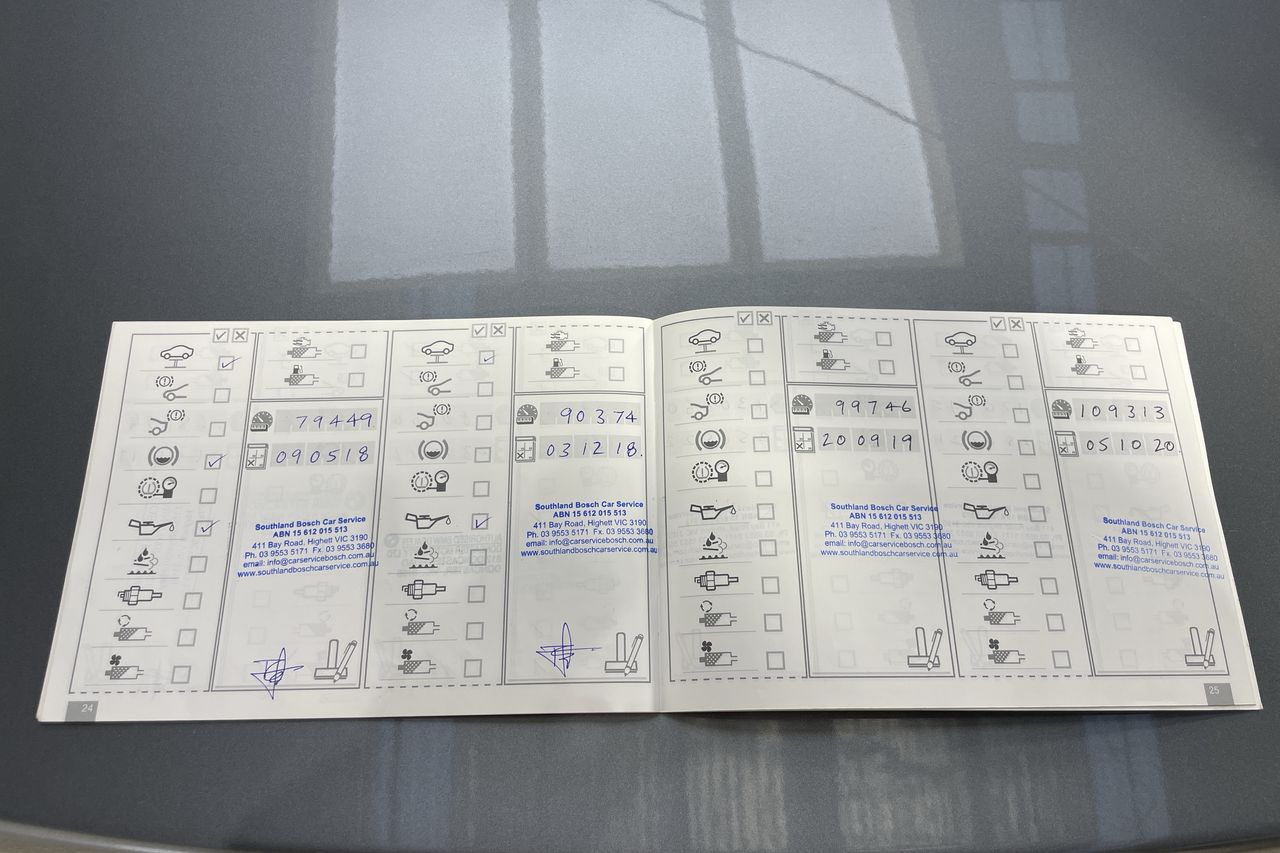 79449
090518
Southland Bosch Car Service
ABN 15 612 015 513
411 Bay Road, Highett VIC 3190
Ph. 03 9553 5171 Fx. 03 9553 3680
email: info@carservicebosch.com.au
www.southlandboschcarservice.com.au
24
90374
031218.
Southland Bosch Car Service
ABN 15 612 015 513
411 Bay Road, Highett VIC 3190
Ph. 03 9553 5171 Fx. 03 9553 3680
email: info@carservicebosch.com.au
www.southlandboschcarservice.com.au
99746
200919
Southland Bosch Car Service
ABN 15 612 015 513
411 Bay Road, Highett VIC 3190
Ph. 03 9553 5171 Fx. 03 9553 3680
email: info@carservicebosch.com.au
www.southlandboschcarservice.com.au
109313
051020.
Southland Bosch Car Service
ABN 15 612 015 513
411 Bay Road, Highett VIC 3190
Ph. 03 9553 5171 Fx. 03 9553 3680
email: info@carservicebosch.com.au
www.southlandboschcarservice.com.au
25